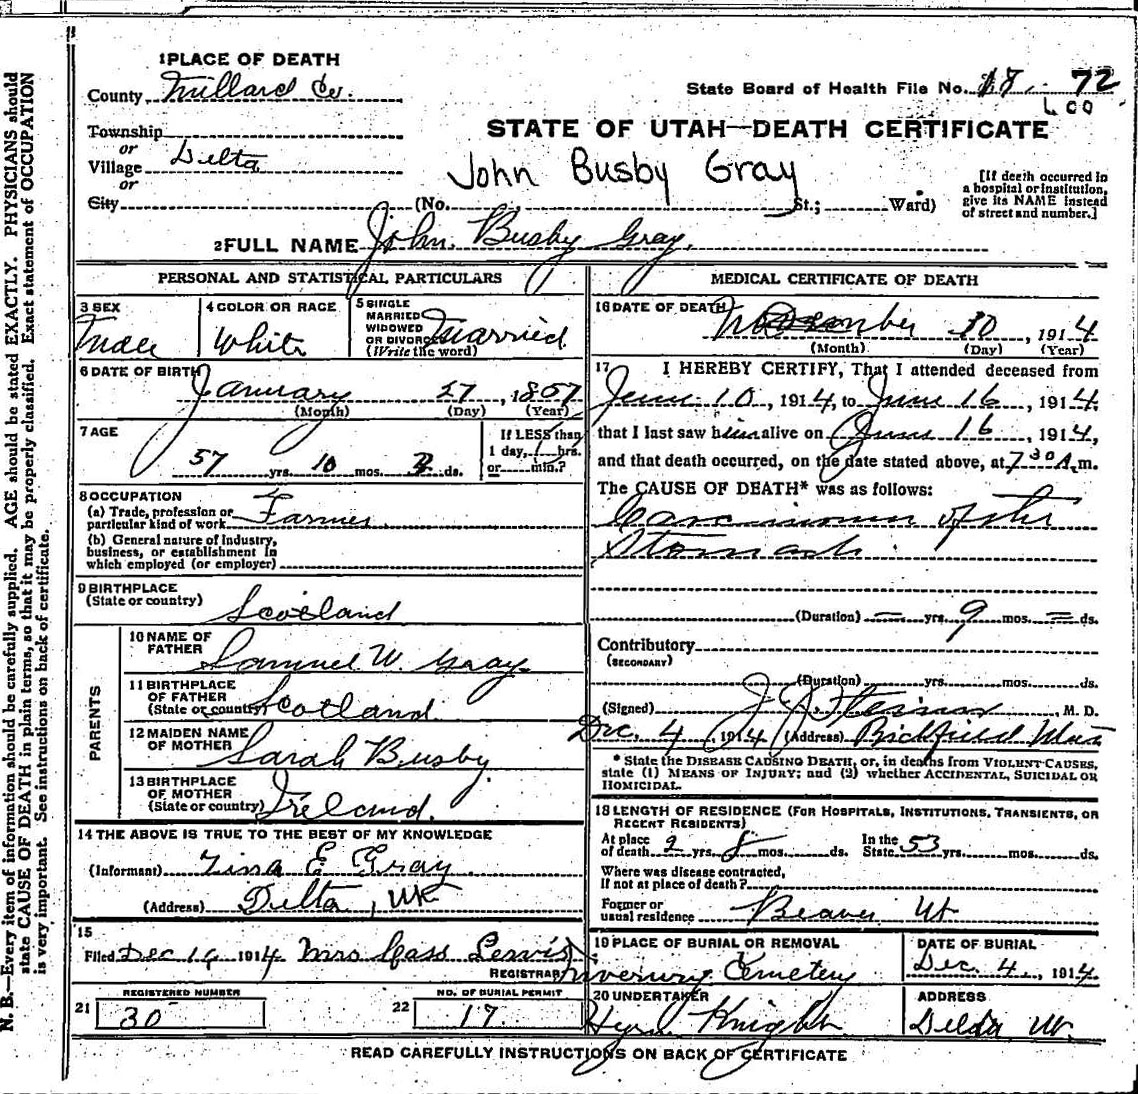 1 PLACE OF DEATH
County Millard Co.
State Board of Health File No. 18 72
Township
or
Village Delta
or
City
STATE OF UTAH—DEATH CERTIFICATE
John Busby Gray
(No. St.; Ward)
[If death occurred in
a hospital or institution,
give its NAME instead
of street and number.]
2 FULL NAME John Busby Gray
PERSONAL AND STATISTICAL PARTICULARS
3 SEX
Male
4 COLOR OR RACE
White
5 SINGLE
MARRIED
WIDOWED
OR DIVORCED
(Write the word)
Married
6 DATE OF BIRTH
January 27, 1857
(Month) (Day) (Year)
7 AGE
57 yrs. 10 mos. ds.
If LESS than
1 day, hrs.
or min.?
8 OCCUPATION
(a) Trade, profession or
particular kind of work Farmer
(b) General nature of industry,
business, or establishment in
which employed (or employer)
9 BIRTHPLACE
(State or country)
Scotland
PARENTS
10 NAME OF
FATHER
Samuel W. Gray
11 BIRTHPLACE
OF FATHER
(State or country)
Scotland
12 MAIDEN NAME
OF MOTHER
Sarah Busby
13 BIRTHPLACE
OF MOTHER
(State or country)
Ireland
14 THE ABOVE IS TRUE TO THE BEST OF MY KNOWLEDGE
(Informant) E Gray
(Address) Delta, Ut
15
Filed Dec 1914 Mrs Cass Lewis
REGISTRAR
21 REGISTERED NUMBER
30
22 NO. OF BURIAL PERMIT
17
MEDICAL CERTIFICATE OF DEATH
16 DATE OF DEATH
November 30, 1914
(Month) (Day) (Year)
17 I HEREBY CERTIFY, That I attended deceased from
June 10, 1914, to June 16, 1914,
that I last saw him alive on June 16, 1914,
and that death occurred, on the date stated above, at 7 30 A.m.
The CAUSE OF DEATH* was as follows:
Carcinoma of the
Stomach
(Duration) yrs. 9 mos. ds.
Contributory
(SECONDARY)
(Duration) yrs. mos. ds.
(Signed) J. M. D.
Dec. 4, 1914 (Address) Richfield
* State the DISEASE CAUSING DEATH, or, in deaths from VIOLENT CAUSES,
state (1) MEANS OF INJURY; and (2) whether ACCIDENTAL, SUICIDAL OR
HOMICIDAL.
18 LENGTH OF RESIDENCE (FOR HOSPITALS, INSTITUTIONS, TRANSIENTS, OR
RECENT RESIDENTS)
At place
of death 2 yrs. 8 mos. ds. In the
State 53 yrs. mos. ds.
Where was disease contracted,
if not at place of death?
Former or
usual residence Beaver Ut
19 PLACE OF BURIAL OR REMOVAL
Cemetery
DATE OF BURIAL
Dec. 4, 1914
20 UNDERTAKER
Knight
ADDRESS
Delta Ut.
READ CAREFULLY INSTRUCTIONS ON BACK OF CERTIFICATE
N. B.—Every item of information should be carefully supplied. AGE should be stated EXACTLY. PHYSICIANS should
state CAUSE OF DEATH in plain terms, so that it may be properly classified. Exact statement of OCCUPATION
is very important. See instructions on back of certificate.